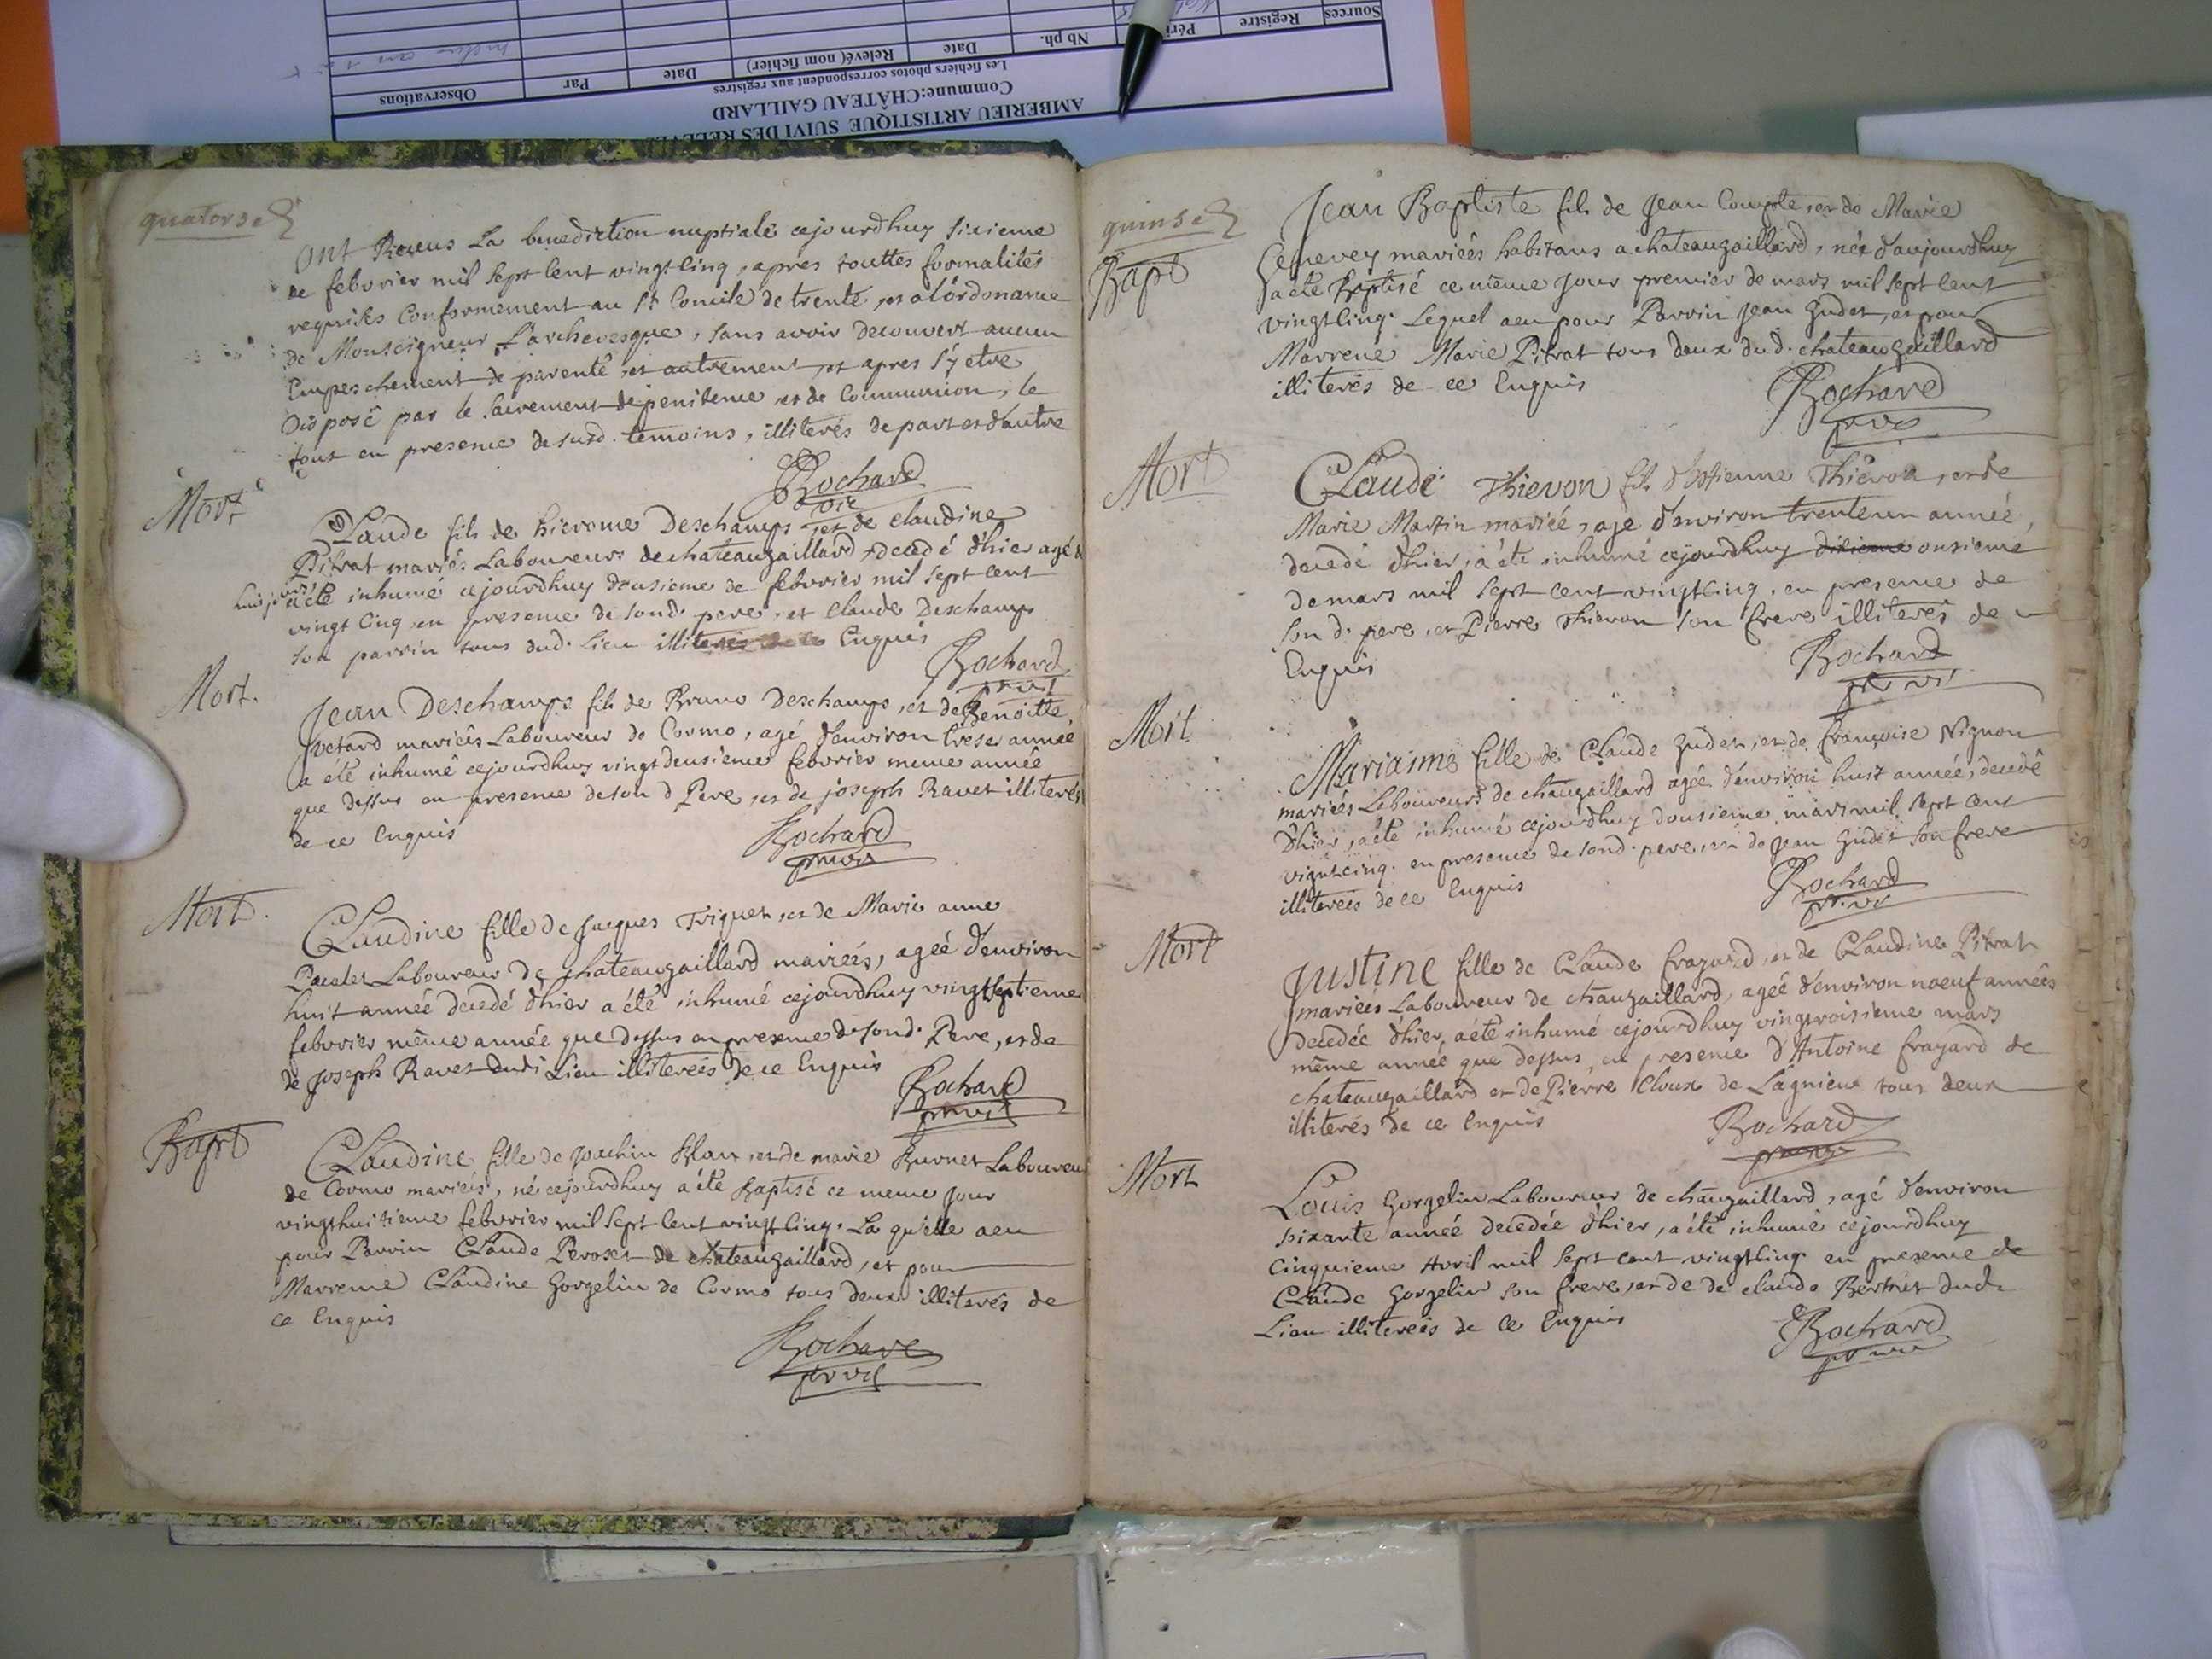 AMBERIEU ARTISTIQUE SUIVI DES RELEVES
Commune:CHÂTEAU GAILLARD
Les fichiers photos correspondent aux registres
Sources
Registre
Péri
Nb ph.
Date
Relevé( nom fichier)
Date
Par
Observations
quatorse
ont Receus La benediction nuptiale cejourdhuy sixieme
de febvrier mil sept cent vingt cinq, apres touttes formalités
requises Conformement au St Concile de trente, et a lordonance
de Monseigneur L'archevesque, sans avoir decouvert aucun
Empeschement de parenté, et autrement, et apres s'y etre
Disposé par le sacrement de penitence et de Communion, le
tout en presence desusd. temoins, illiterés de part et d'autre
Rochard
vic
Mort
Claude fils de hierome Deschamps, et de Claudine
Pitrat mariés Laboureurs de chateaugaillard, decedé d'hier agé de
huit jours a été inhumé cejourdhuy dousieme de febvrier mil sept cent
vingt cinq, en presence de sond. pere, et Claude Deschamps
son parrin tous dud. lieu illiterés de ce Enquis
Rochard
Mort.
Jean Deschamps fils de Bruno Deschamps, et de Benoitte
mariés Laboureur de Cormo, agé d'environ trese année
a été inhumé cejourdhuy vingt deusieme febvrier meme année
que dessus en presence de son d Pere, et de joseph Ravet illiterés
de ce Enquis
Rochard
Mort.
Claudine fille de Jacques Triquet, et de Marie anne
Laboureur de chateaugaillard mariés, ageé d'environ
huit année decedé d'hier a été inhumé cejourdhuy vingt septieme
febvrier même année que dessus en presence de sond. Pere, et de
de Joseph Ravet dudi Lieu illitereés de ce Enquis
Rochard
Bapt
Claudine fille de Joachin Blanc, et de marie Burnet Laboureu
de Cormo mariés, né cejourdhuy a été Baptisé ce meme jour
vingt huitieme febvrier mil sept cent vingt cinq. La qu'elle a eu
pour Parrin Claude Peroset de chateaugaillard, et pour
Marreme Claudine Gorgelin de Cormo tous deux illiterés de
ce Enquis
Rochard
quinse
Bapt
Jean Baptiste fils de Jean Compte, et de Marie
Genevey marieés habitans a chateaugaillard, née d'aujourdhuy
a été Baptisé ce même jour premier de mars mil sept cent
vingt cinq. Lequel a eu pour Parrin Jean Gudet, et pour
Marrene Marie Pitrat tous deux du d. chateaugaillard
illiterés de ce Enquis
Rochard
Mort
Claude Thievon fils d'Estienne Thievon, et de
Marie Martin mariéé, agé d'environ trente un année,
decedé d'hier, a été inhumé cejourdhuy dixieme onsieme
de mars mil sept cent vingt cinq, en presence de
son d. pere, et Pierre Thievon son frere illiterés de ce
Enquis
Rochard
Mort
Marianne fille de Claude Gudet, et de françoise Nignon
mariés Laboureurs de chaugaillard agée d'environ huit année, decedé
d'hier, a été inhumé cejourdhuy dousieme mars mil sept cent
vigntcinq. en presence de sond. pere, et de Jean Gudet son frere
illitereés de ce Enquis
Rochard
Mort
Justine fille de Claude frayard, et de Claudine Pitrat
marieés Laboureur de chaugaillard, ageé d'environ noeuf années
decedée d'hier, a été inhumé cejourdhuy vingtroisieme mars
même année que dessus, en presence d'Antoine frayard de
chateaugaillard et de Pierre Cloux de Lagnieux tous deux
illiterés de ce Enquis
Rochard
Mort
Louis Gorgelin Laboureur de chaugaillard, agé d'environ
soixante année decedée d'hier, a été inhumé cejourdhuy
cinquieme Avril mil sept cent vingt cinq en presence de
Claude Gorgelin son frere, et de de claude Bertret dud.
Lieu illitereés de ce Enquis
Rochard